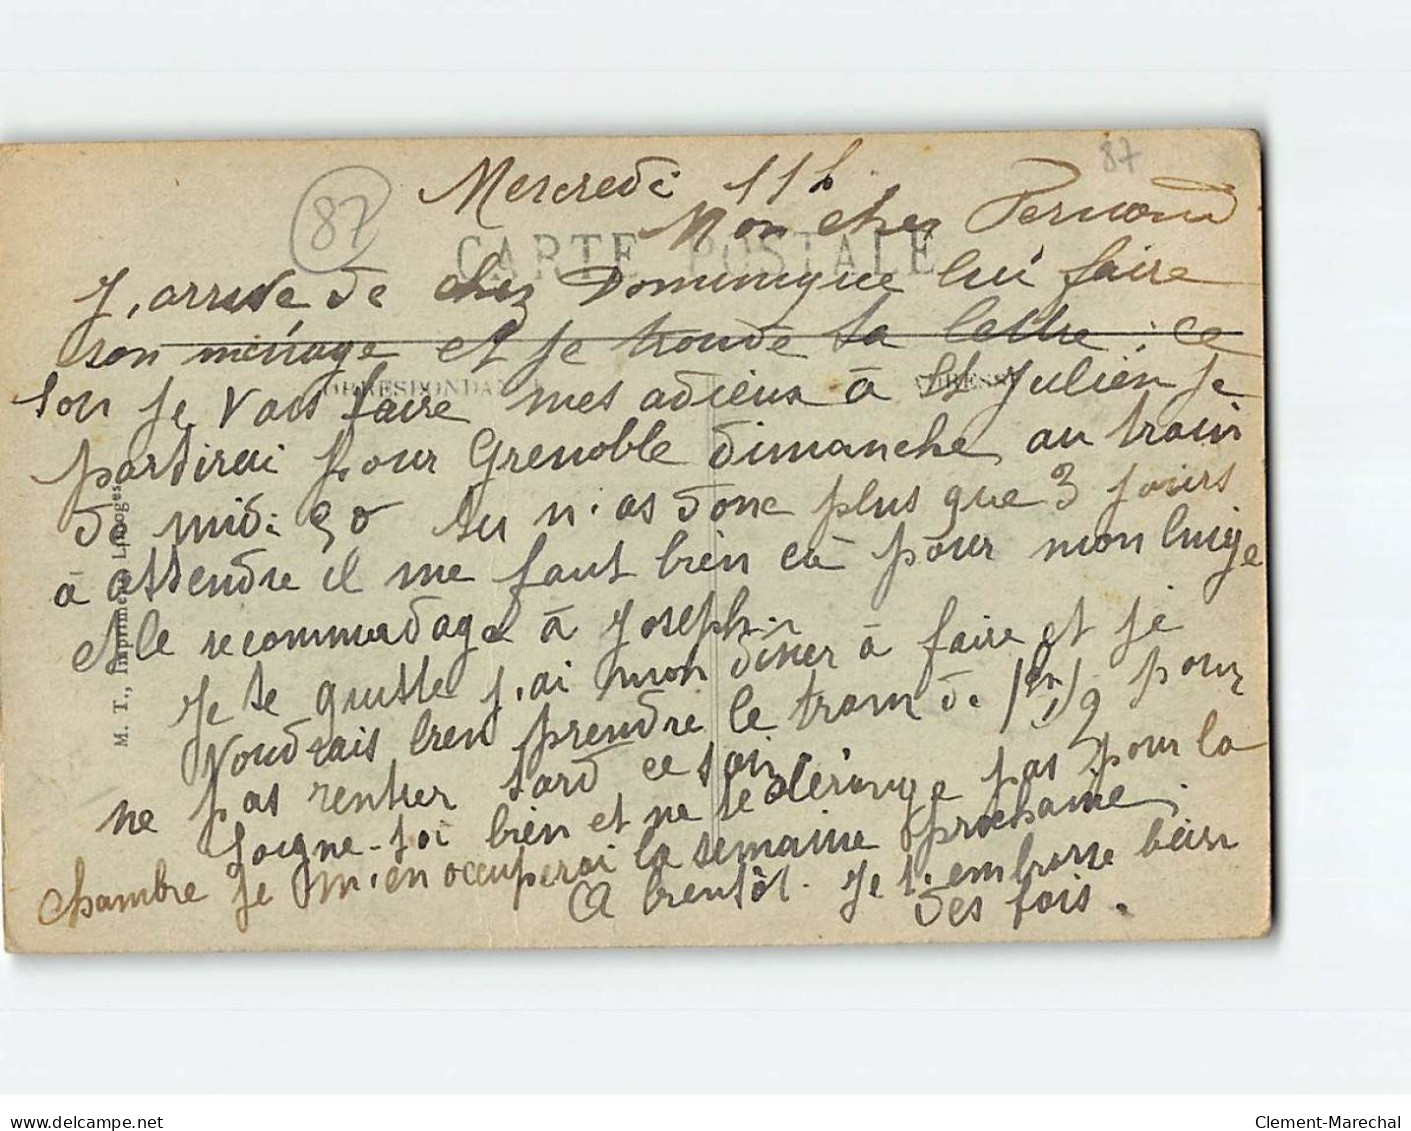 87
87
Mercredi 11 h
Mon cher Fernand
CARTE POSTALE
J, arrive de chez Dominique lui faire
son ménage et je trouve ta lettre ; ce
CORRESPONDANCE
ADRESSE
soir je vais faire mes adieux à St Julien je
partirai pour Grenoble dimanche au train
de midi 50 tu n'as donc plus que 3 jours
à attendre il me faut bien ça pour mon linge
et le recommodage à Joseph.
Je te quitte j,ai mon dîner à faire et je
voudrais bien prendre le tram de 1h 1/2 pour
ne pas rentrer tard ce soir
Soigne-toi bien et ne te dérange pas pour la
chambre je m'en occuperai la semaine prochaine.
A bientôt. Je t'embrasse bien
des fois.
M. T., Imprimeur Limoges
Clement-Marechal
www.delcampe.net